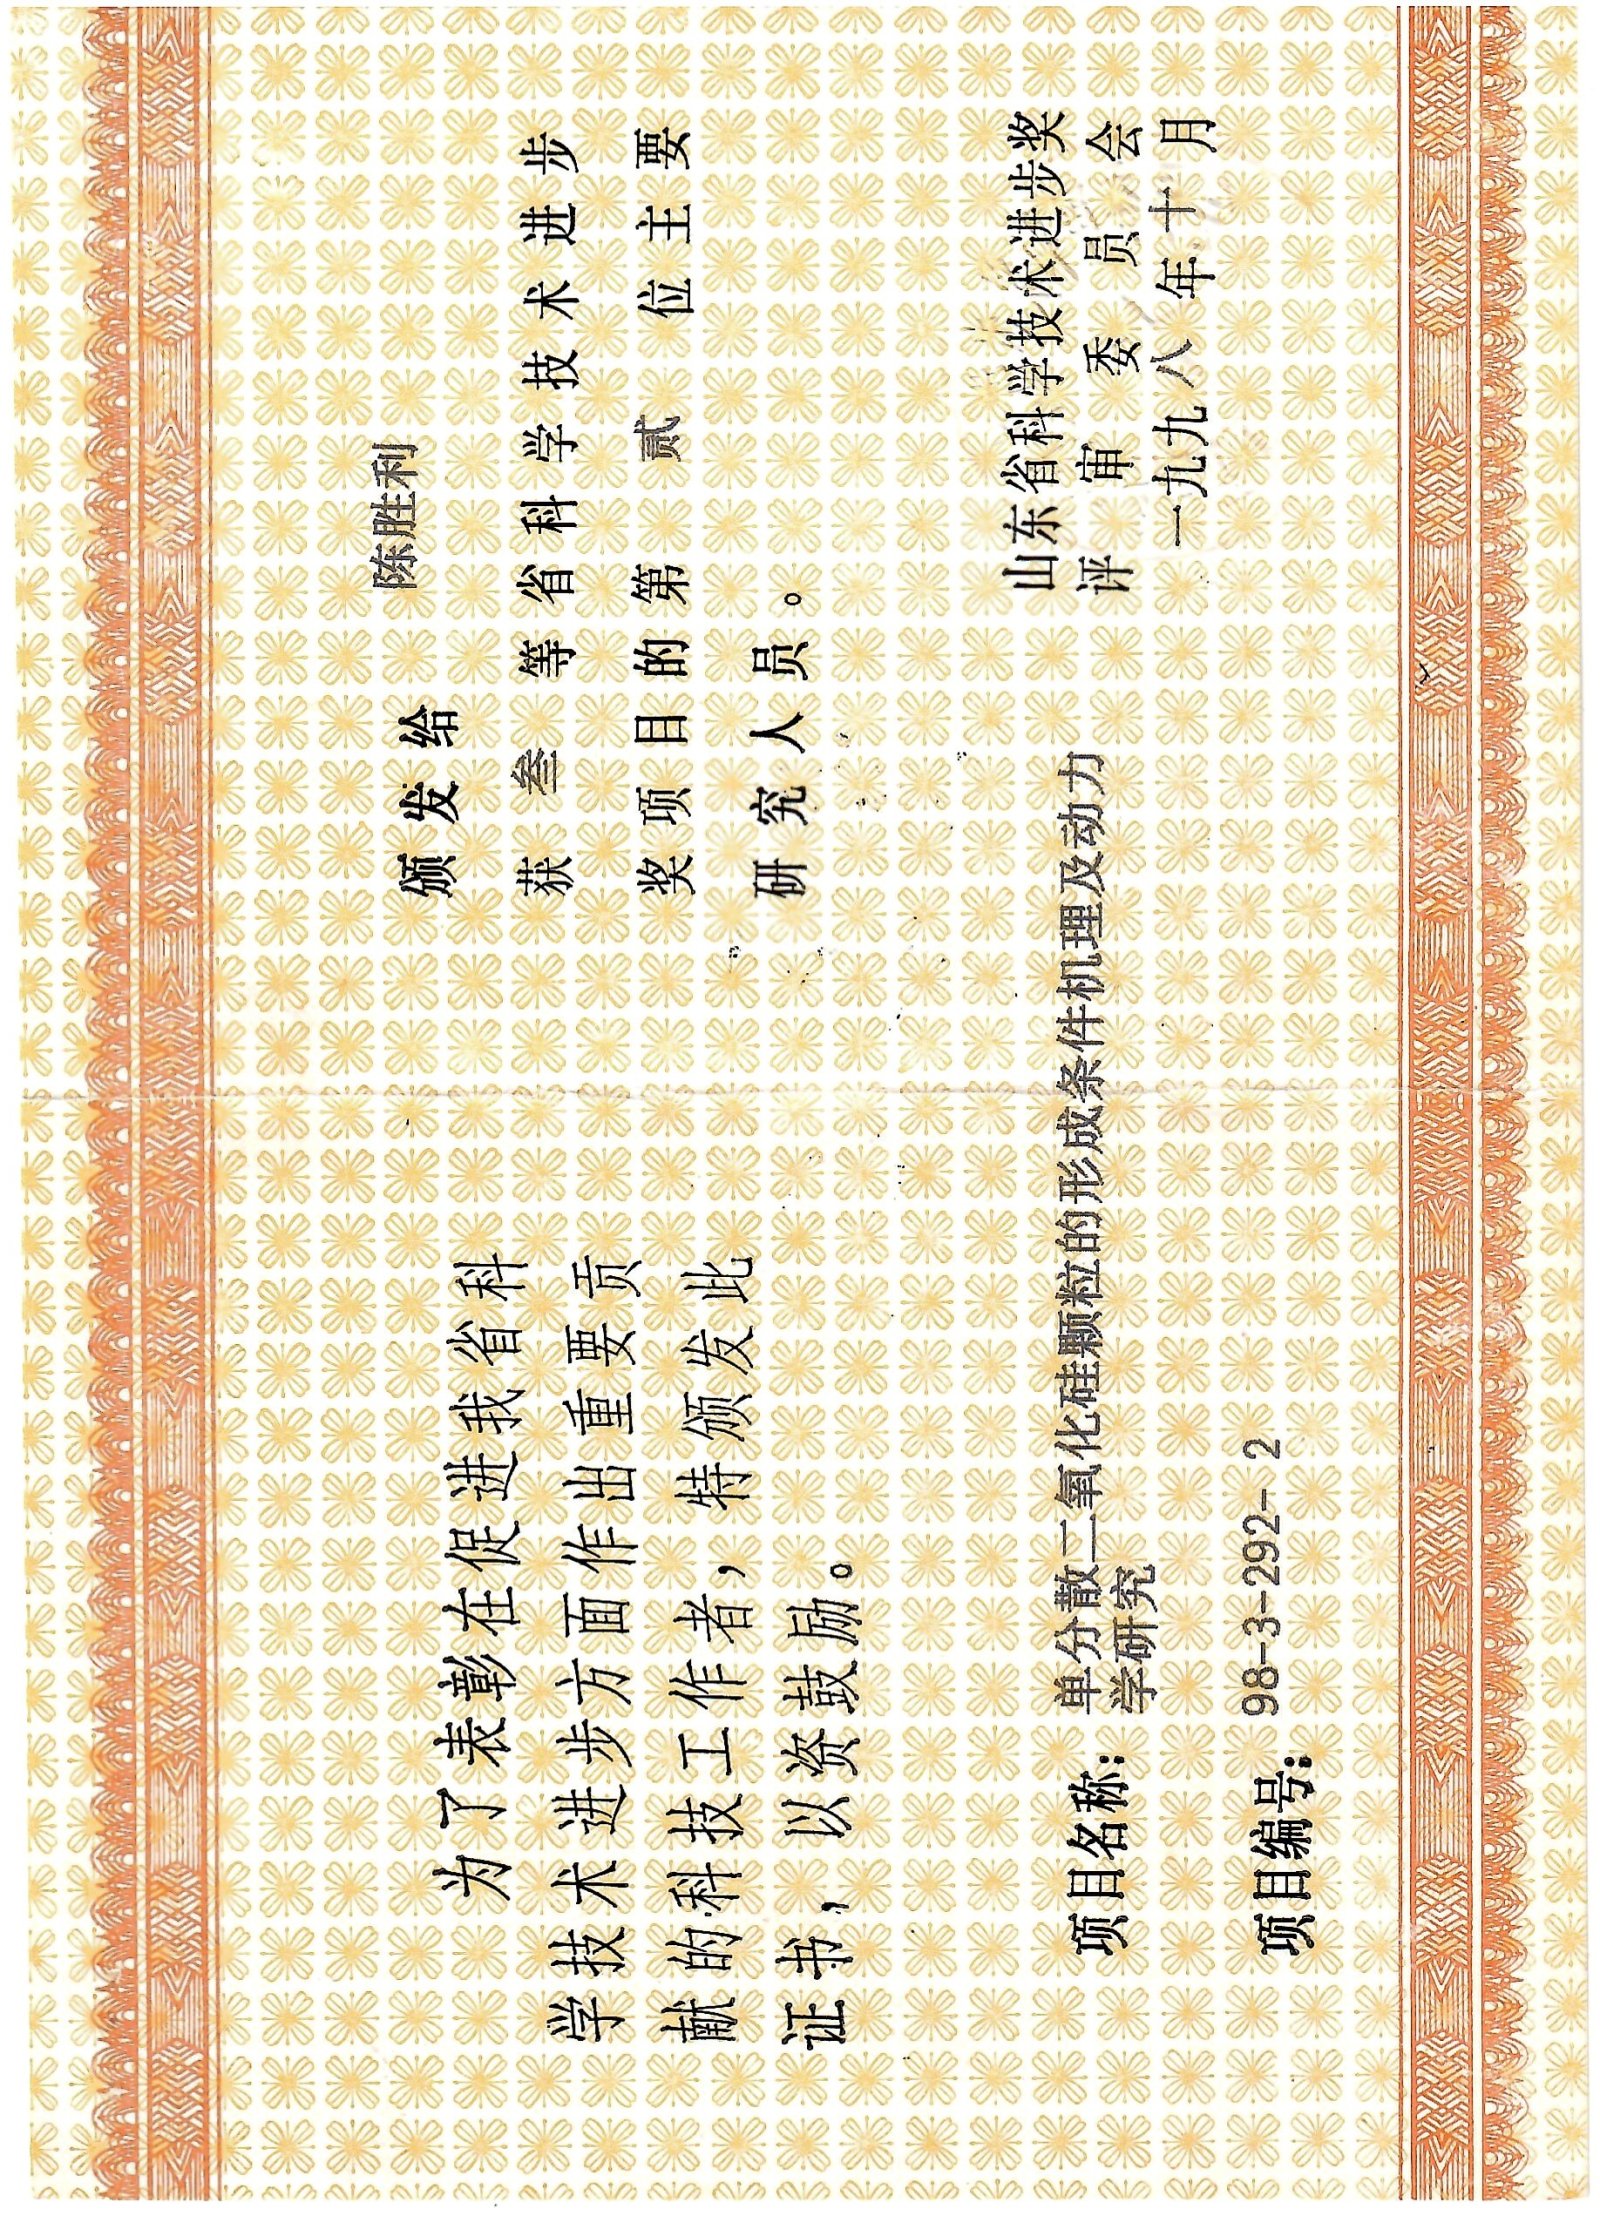 为了表彰在促进我省科
学技术进步方面作出重要贡
献的科技工作者，特颁发此
证书，以资鼓励。
项目名称：单分散二氧化硅颗粒的形成条件机理及动力
学研究
项目编号：98-3-292- 2
颁发给 陈胜利
获 叁 等省科学技术进步
奖项目的第 贰 位主要
研究人员。
山东省科学技术进步奖
评审委员会
一九九八年十月